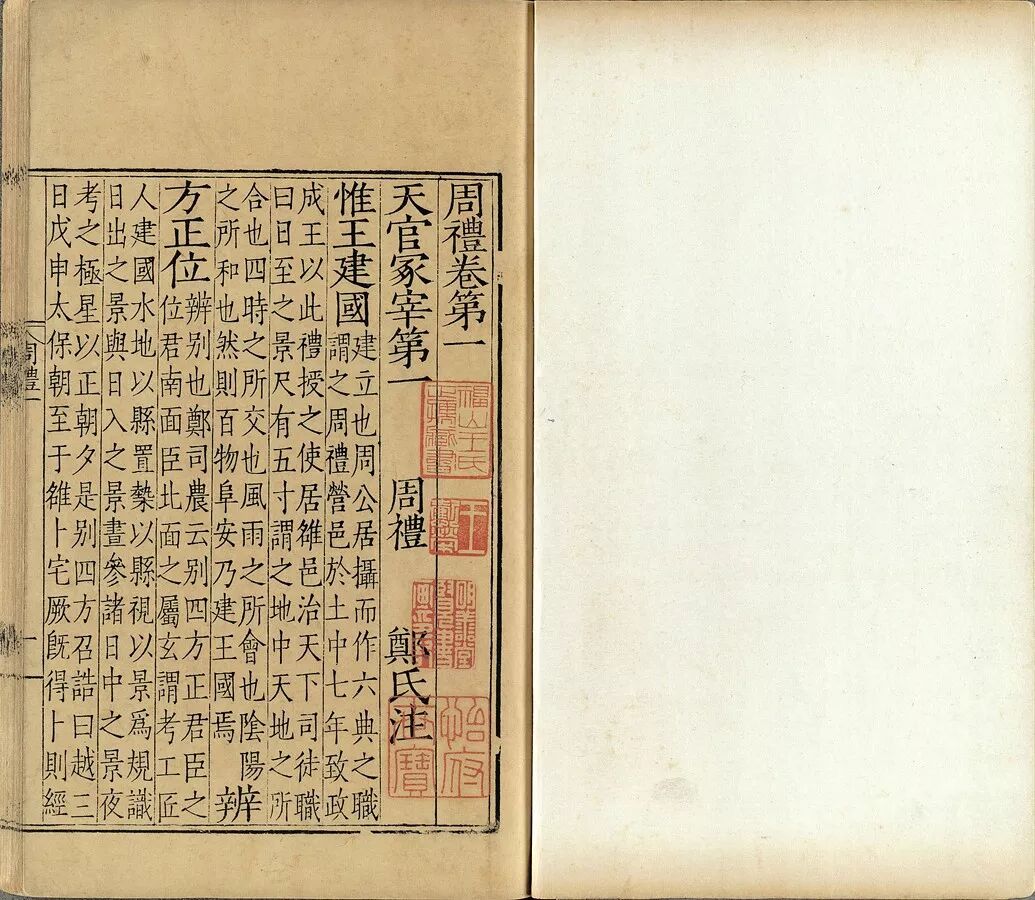 周禮卷第一
天官冢宰第一 周禮 鄭氏注
惟王建國 建立也周公居攝而作六典之職
謂之周禮營邑於土中七年致政
成王以此禮授之使居雒邑治天下司徒職
曰日至之景尺有五寸謂之地中天地之所
合也四時之所交也風雨之所會也陰陽
之所和也然則百物阜安乃建王國焉 辨
方正位 辨别也鄭司農云别四方正君臣之
位君南面臣北面之屬玄謂考工匠
人建國水地以縣置槷以縣視以景爲規識
日出之景與日入之景晝參諸日中之景夜
考之極星以正朝夕是别四方召誥曰越三
日戊申太保朝至于雒卜宅厥旣得卜則經
周禮一
一
福山王氏正孺藏書
王懿榮
明善堂覽書畫印記
怡府世寶